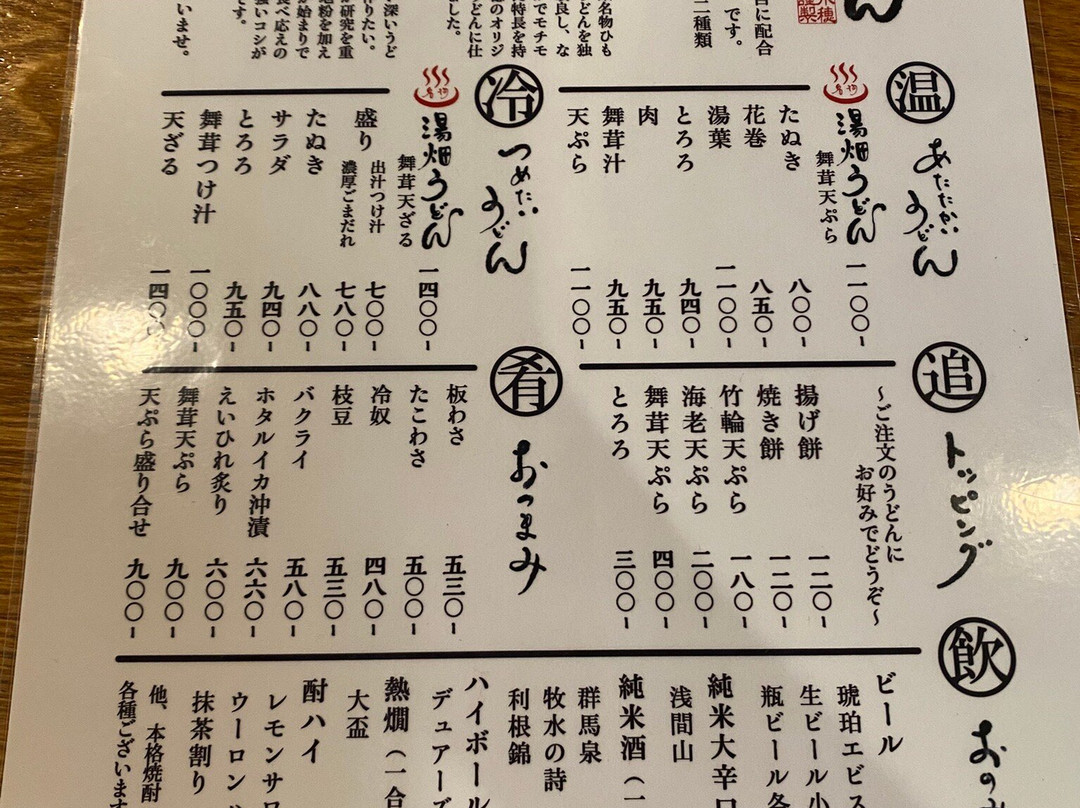 ん
に配合
です。
二種類
名物ひも
どんを独
良し、な
でモチモ
特長を持
のオリジ
どんに仕
した。
深いうど
りたい。
が研究を重
粉を加え
が始まりで
べ応えの
強いコシが
です。
いませ。
温 あたたかいうどん
湯畑うどん
舞茸天ぷら 一一〇〇-
たぬき 八〇〇-
花巻 八五〇-
湯葉 一一〇〇-
とろろ 九四〇-
肉 九五〇-
舞茸汁 九五〇-
天ぷら 一一〇〇-
冷 つめたいうどん
湯畑うどん
舞茸天ざる 一四〇〇-
盛り 出汁つけ汁 七〇〇-
濃厚ごまだれ 七八〇-
たぬき 八八〇-
サラダ 九四〇-
とろろ 九五〇-
舞茸つけ汁 一〇〇〇-
天ざる 一四〇〇-
追 トッピング
〜ご注文のうどんに
お好みでどうぞ〜
揚げ餅 一二〇-
焼き餅 一二〇-
竹輪天ぷら 一八〇-
海老天ぷら 二〇〇-
舞茸天ぷら 四〇〇-
とろろ 三〇〇-
肴 おつまみ
板わさ 五三〇-
たこわさ 五〇〇-
冷奴 四八〇-
枝豆 五三〇-
バクライ 五八〇-
ホタルイカ沖漬 六六〇-
えいひれ炙り 六〇〇-
舞茸天ぷら 九〇〇-
天ぷら盛り合せ 九〇〇-
飲 おの
ビール
琥珀エビス
生ビール小
瓶ビール各
純米大辛口
浅間山
純米酒（一
群馬泉
牧水の詩
利根錦
ハイボール
デュアーズ
熱燗（一合
大盃
酎ハイ
レモンサワ
ウーロン
抹茶割り
他、本格焼酎
各種ございます